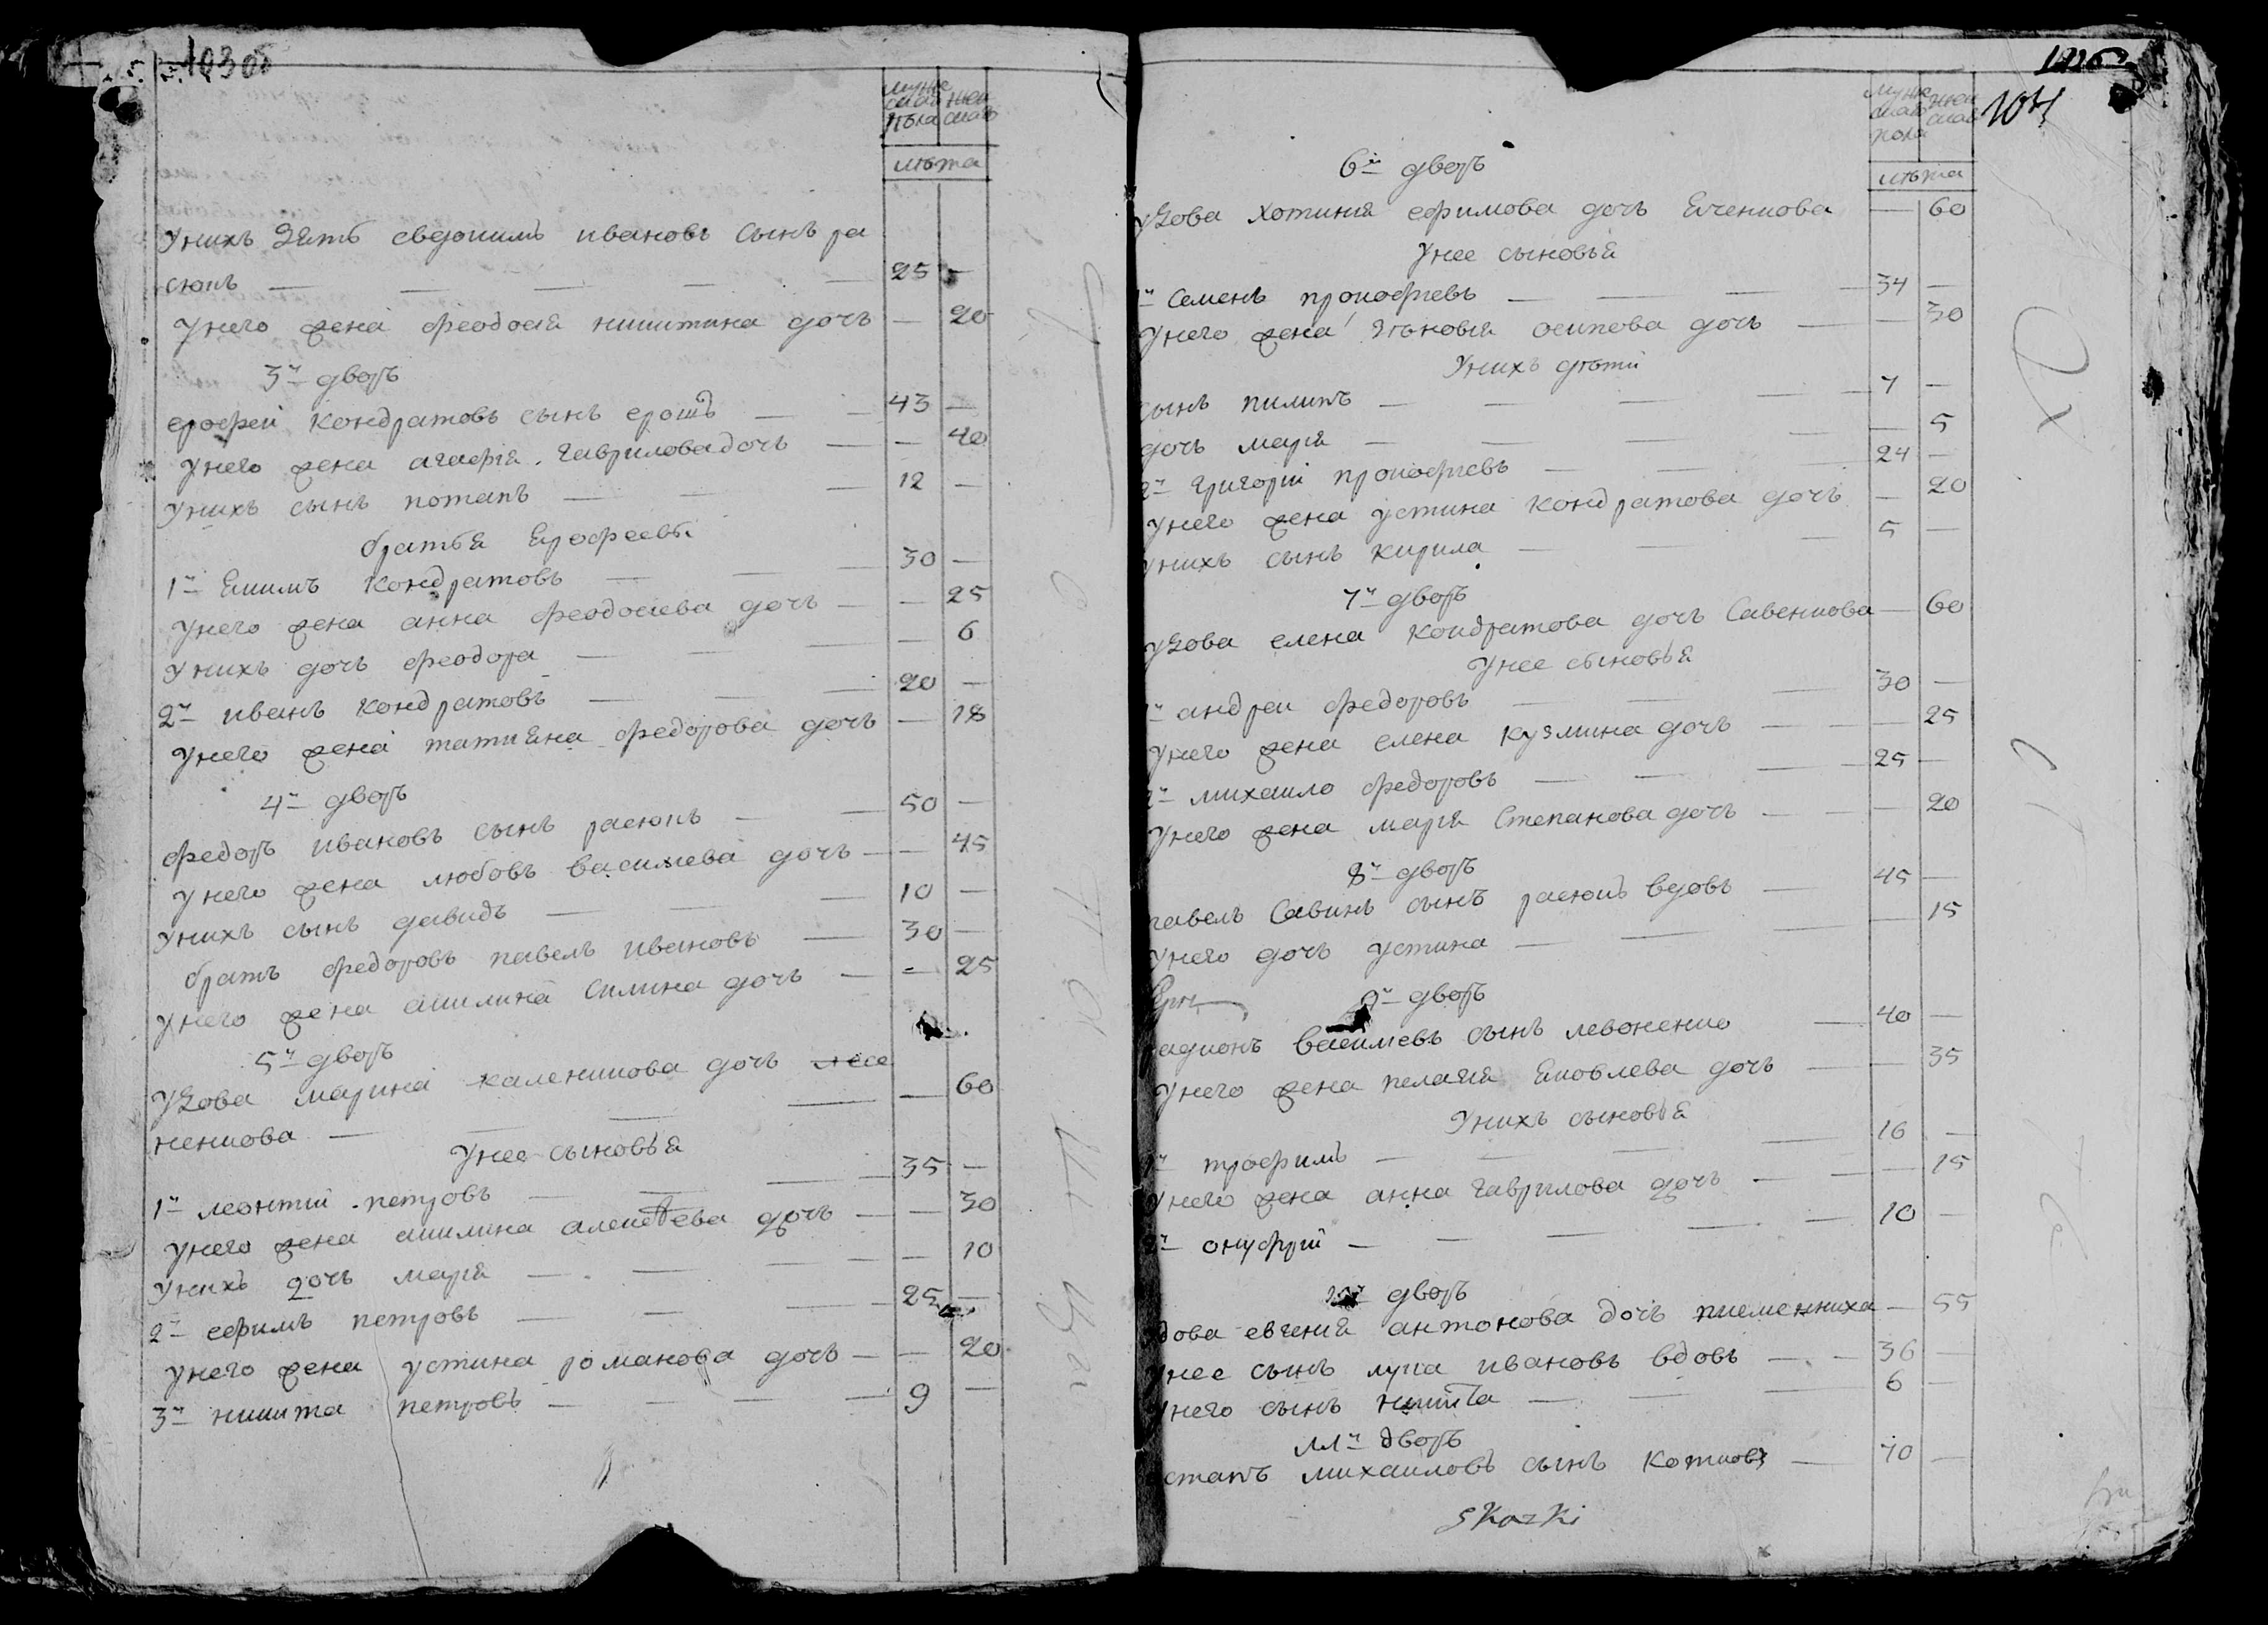 103об
мужескаго пола
женскаго
лѣта
Унихъ зять евдокимъ ивановъ сынъ ра
сюкъ — 25 —
Унего жена феодосия никитина дочь — 20
3й дворъ
ерофей кондратовъ сынъ ерошъ — 43 —
Унего жена агафия гаврилова дочь — 40
Унихъ сынъ потапъ — 12 —
братья Ерофеевы
1й Екимъ кондратовъ — 30 —
Унего жена анна феодосиева дочь — 25
Унихъ дочь феодора — 6
2й иванъ кондратовъ — 20 —
Унего жена татияна федорова дочь — 18
4й дворъ
федоръ ивановъ сынъ расюкъ — 50 —
Унего жена любовь василиева дочь — 45
Унихъ сынъ давидъ — 10 —
братъ федоровъ павелъ ивановъ — 30 —
Унего жена акилина силина дочь — 25
5й дворъ
Удова марина каленикова дочь
ненкова — 60
Унее сыновья
1й леонтий петровъ — 35 —
Унего жена акилина алексѣева дочь — 30
Унихъ дочь мария — 10
2й ефимъ петровъ — 25 —
Унего жена устина романова дочь — 20
3й никита петровъ — 9 —
104
мужескаго пола
женскаго
лѣта
6й дворъ
удова хотиния ефимова дочь Евченкова — 60
Унее сыновья
1й Семенъ прокофиевъ — 34 —
Унего жена зѣновия осипова дочь — 30
Унихъ дѣти
сынъ пилипъ — 7 —
дочь мария — 5
2й григорий прокофиевъ — 24 —
Унего жена устина кондратова дочь — 20
унихъ сынъ кирила — 5 —
7й дворъ
удова елена кондратова дочь Савенкова — 60
Унее сыновья
1й андреи федоровъ — 30 —
Унего жена елена кузмина дочь — 25
2й михаило федоровъ — 25 —
Унего жена мария Степанова дочь — 20
8й дворъ
павелъ Савинъ сынъ расюкъ вдовъ — 45 —
Унего дочь устина — 15
9й дворъ
радионъ василиевъ сынъ левоненко — 40 —
Унего жена пелагия Яковлева дочь — 35
Унихъ сыновья
1й трофимъ — 16 —
Унего жена анна гаврилова дочь — 15
2й онуфрий — 10 —
10й дворъ
вдова евгения антонова дочь писменниха — 55
Унее сынъ лука ивановъ вдовъ — 36 —
Унего сынъ никита — 6 —
11й дворъ
остапъ михаиловъ сынъ Котковъ — 70 —
Skazki